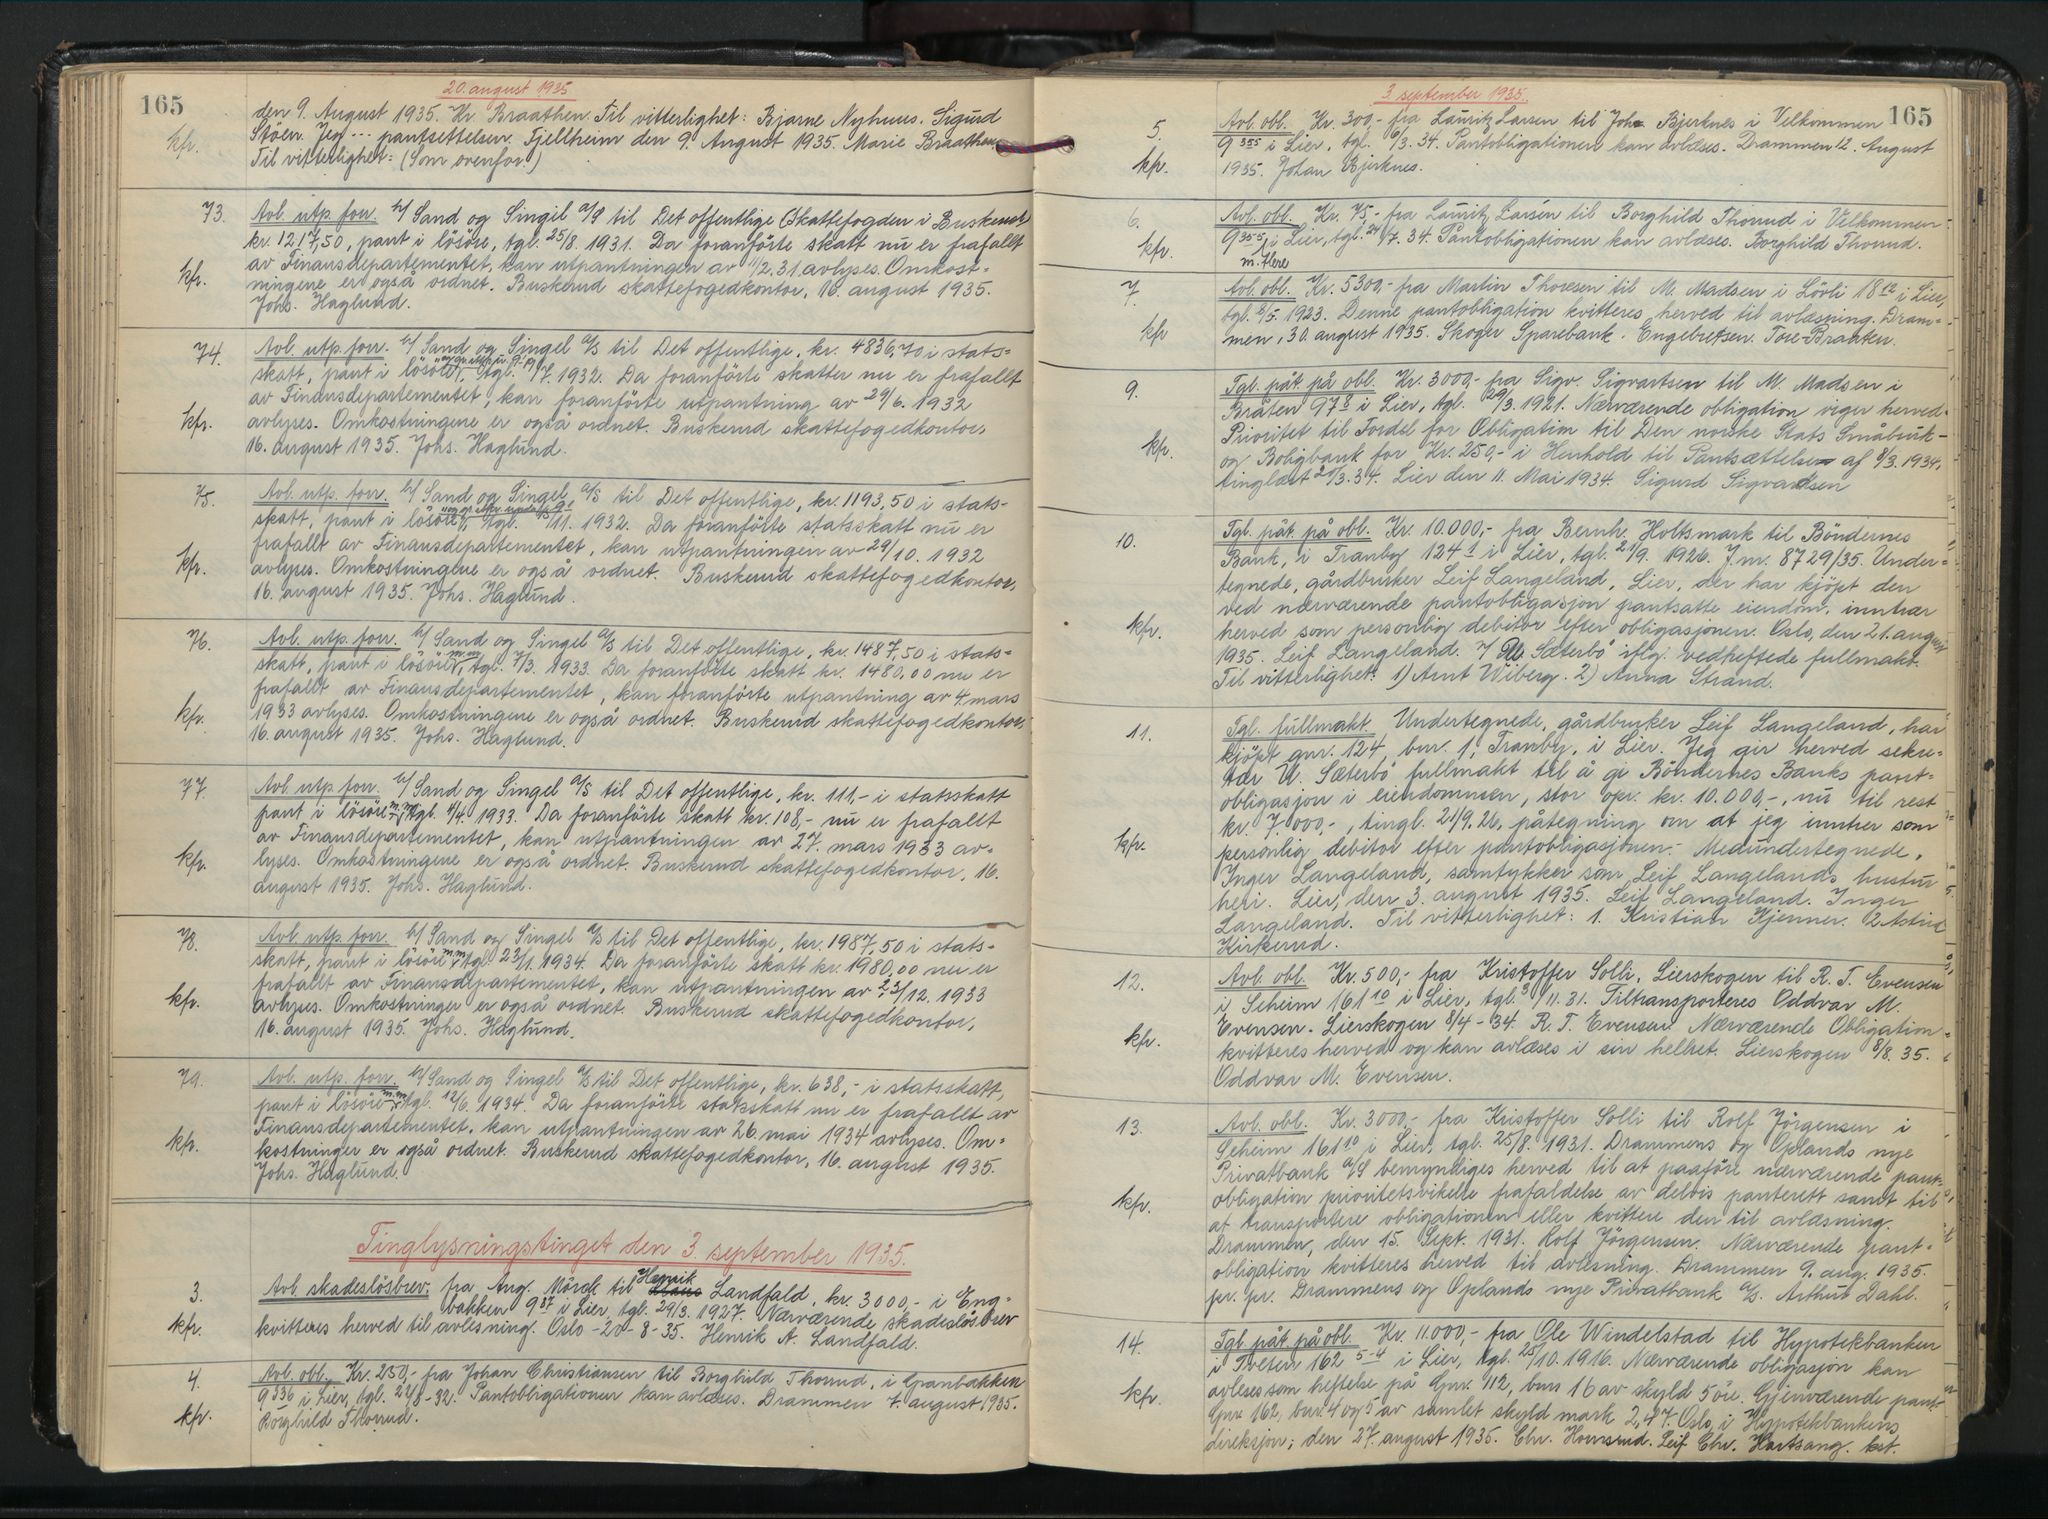 165
20. august 1935
den 9. August 1935. Kr. Braathen. Til vitterlighet: Bjarne Nyhuus. Sigurd
Støen. Jeg --- pantsettelsen. Fjellheim den 9. August 1935. Marie Braathen
kfr.
Til vitterlighet: (Som ovenfor)
73.
Avl. utp. forr. h/ Sand og Singel A/S til Det offentlige (Skattefogden i Buskerud
kr. 1217,50, pant i lösöre, tgl. 25/8. 1931. Da foranförte skatt nu er frafallt
av Finansdepartementet, kan utpantningen av 11/2.31. avlyses. Omkost-
kfr.
ningene er også ordnet. Buskerud skattefogedkontor, 16. august 1935.
Johs. Haglund.
74.
Avl. utp. forr. h/ Sand og Singel A/S til Det offentlige, kr. 4836,70 i stats-
skatt, pant i lösöre, tgl. 19/7. 1932. Da foranförte skatter nu er frafallt
av Finansdepartementet, kan foranförte utpantning av 29/6. 1932
kfr.
avlyses. Omkostningene er også ordnet. Buskerud skattefogedkontor,
16. august 1935. Johs. Haglund.
75.
Avl. utp. forr. h/ Sand og Singel A/S til Det offentlige, kr. 1193,50 i stats-
skatt, pant i lösöre, tgl. /11. 1932. Da foranförte statsskatt nu er
frafallt av Finansdepartementet, kan utpantningen av 29/10. 1932
kfr.
avlyses. Omkostningene er også ordnet. Buskerud skattefogedkontor,
16. august 1935. Johs. Haglund.
76.
Avl. utp. forr. h/ Sand og Singel A/S til Det offentlige, kr. 1487,50 i stats-
skatt, pant i lösöre m.m., tgl. 7/3. 1933. Da foranförte skatt kr. 1480,00 nu er
frafallt av Finansdepartementet, kan foranförte utpantning av 4. mars
kfr.
1933 avlyses. Omkostningene er også ordnet. Buskerud skattefogedkontor,
16. august 1935. Johs. Haglund.
77.
Avl. utp. forr. h/ Sand og Singel A/S til Det offentlige, kr. 111,- i statsskatt
pant i lösöre m.m., tgl. 4/4. 1933. Da foranförte skatt kr. 108,- nu er frafallt
av Finansdepartementet, kan utpantningen av 27. mars 1933 av-
kfr.
lyses. Omkostningene er også ordnet. Buskerud skattefogedkontor, 16.
august 1935. Johs. Haglund.
78.
Avl. utp. forr. h/ Sand og Singel A/S til Det offentlige, kr. 1987,50 i stats-
skatt, pant i lösöre m.m., tgl. 23/1. 1934. Da foranförte skatt kr. 1980,00 nu er
frafallt av Finansdepartementet, kan utpantningen av 23/12. 1933
kfr.
avlyses. Omkostninger er også ordnet. Buskerud skattefogedkontor,
16. august 1935. Johs. Haglund.
79.
Avl. utp. forr. h/ Sand og Singel A/S til Det offentlige, kr. 638,- i statsskatt,
pant i lösöre m.m., tgl. 12/6. 1934. Da foranförte statsskatt nu er frafallt av
Finansdepartementet, kan utpantningen av 26. mai 1934 avlyses. Om-
kfr.
kostninger er også ordnet. Buskerud skattefogedkontor, 16. august 1935.
Johs. Haglund.
Tinglysningstinget den 3. september 1935.
3.
Avl. skadeslösbrev. fra Aug. Mörck til Henrik Landfald, kr. 3000,- i Eng-
bakken 9 37 i Lier, tgl. 29/3. 1927. Nærværende skadeslösbrev
kfr.
kvitteres herved til avlesning. Oslo -20-8-35. Henrik A. Landfald.
4.
Avl. obl. Kr. 250,- fra Johan Christiansen til Borghild Thorud, i Granbakken
9 336 i Lier, tgl. 22/8-32. Pantobligationen kan avlæses. Drammen 7. august 1935.
kfr.
Borghild Thorud.
165
3. september 1935.
5.
Avl. obl. Kr. 300,- fra Lauritz Larsen til Joh. Bjerknes i Velkommen
9 355 i Lier, tgl. 6/3. 34. Pantobligationen kan avlæses. Drammen 12. August
kfr.
1935. Johan Bjerknes.
6.
Avl. obl. Kr. 75,- fra Lauritz Larsen til Borghild Thorud i Velkommen
9 355 i Lier, tgl. 24/7. 34. Pantobligationen kan avlæses. Borghild Thorud.
kfr.
m. flere
7.
Avl. obl. Kr. 5300,- fra Martin Thoresen til M. Madsen i Lövli 18 12 i Lier,
tgl. 8/5. 1923. Denne pantobligation kvitteres herved til avlæsning. Dram-
kfr
men, 30. august 1935. Skoger Sparebank. Engebretsen. Tore Braaten.
9.
Tgl. påt. på obl. Kr. 3000,- fra Sigv. Sigvartsen til M. Madsen i
Bråten 97 8 i Lier, tgl. 29/3. 1921. Nærværende obligation viger herved
Prioritet til Fordel for Obligation til Den norske Stats Småbruk-
kfr.
og Boligbank for Kr. 250,- i Henhold til Pantsættelse af 8/3. 1934,
tinglæst 20/3. 34. Lier den 11. Mai 1934. Sigurd Sigvartsen
10.
Tgl. påt. på obl. Kr. 10.000,- fra Bernh. Holtsmark til Böndernes
Bank, i Tranby 124 1 i Lier, tgl. 21/9. 1926. J.nr. 8729/35. Under-
tegnede, gårdbruker Leif Langeland, Lier, der har kjöpt den
ved nærværende pantobligasjon pantsatte eiendom, inntrær
kfr.
herved som personlig debitor efter obligasjonen. Oslo, den 21. august
1935. Leif Langeland. Sæterbö iflg. vedheftede fullmakt.
Til vitterlighet: 1) Arnt Wiberg. 2) Anna Strand.
11.
Tgl. fullmakt. Undertegnede, gårdbruker Leif Langeland, har
kjöpt gnr. 124, bnr. 1, Tranby, i Lier. Jeg gir herved sekre-
tær U. Sæterbö fullmakt til å gi Böndernes Banks pant-
obligasjon i eiendommen, stor opr. kr. 10.000,-, nu til rest
kr. 7.000,-, tingl. 21/9. 26, påtegning om at jeg inntrer som
kfr.
personlig debitor efter pantobligasjonen.- Medundertegnede,
Inger Langeland, samtykker som Leif Langelands hustru
heri. Lier, den 3. august 1935. Leif Langeland. Inger
Langeland. Til vitterlighet: 1. Kristian Kjenner. 2 Astrid
Kirkerud.
12.
Avl. obl. Kr. 500,- fra Kristoffer Solli, Lierskogen til R. T. Evensen
i Seheim 161 10 i Lier, tgl. 3/11. 31. Tiltransporteres Oddvar M.
Evensen. Lierskogen 8/4-34. R. T. Evensen. Nærværende Obligation
kfr.
kvitteres herved og kan avlæses i sin helhet. Lierskogen 8/8. 35.
Oddvar M. Evensen.
13.
Avl. obl. Kr. 3000,- fra Kristoffer Solli til Rolf Jörgensen i
Seheim 161 10 i Lier, tgl. 25/8. 1931. Drammens og Oplands nye
Privatbank A/S bemyndiges herved til at paaföre nærværende pant-
kfr.
obligation prioritetsvikelse frafaldelse av delvis panterett samt til
at transportere obligationen eller kvittere den til avlæsning.
Drammen, den 15. Sept. 1931. Rolf Jörgensen. Nærværende pant-
obligation kvitteres herved til avlesning. Drammen 9. aug. 1935.
pr. pr. Drammens og Oplands nye Privatbank A/S. Arthur Dahl.
14.
Tgl. påt. på obl. Kr. 11.000,- fra Ole Windelstad til Hypotekbanken
i Tveten 162 5-4 i Lier, tgl. 25/10. 1916. Nærværende obligasjon kan
kfr.
avleses som heftelse på Gnr. 112, bnr 16 av skyld 5 öre. Gjenværende pant:
Gnr 162, bnr. 4 og 5 av samlet skyld mark 2,47. Oslo, i Hypotekbankens
direksjon, den 27. august 1935. Chr. Hornsrud. Leif Chr. Hartsang. kst.